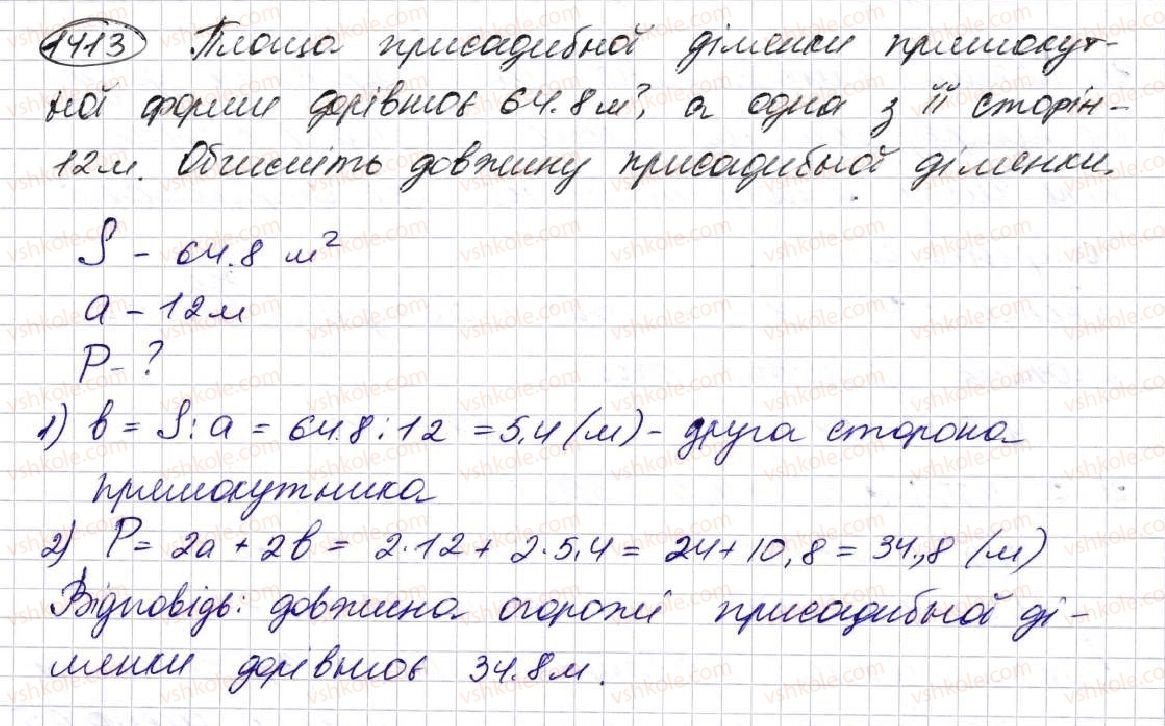 1413 Площа присадибної ділянки прямокут-
ної форми дорівнює 64.8 м², а одна з її сторін-
12м. Обчисліть довжину присадибної ділянки.
S - 64.8 м²
a - 12м
P - ?
1) b = S : a = 64.8 : 12 = 5,4 (м) - друга сторона
прямокутника
2) P = 2a + 2b = 2·12 + 2·5,4 = 24 + 10,8 = 34,8 (м)
Відповідь: довжина огорожі присадибної ді-
лянки дорівнює 34.8м.